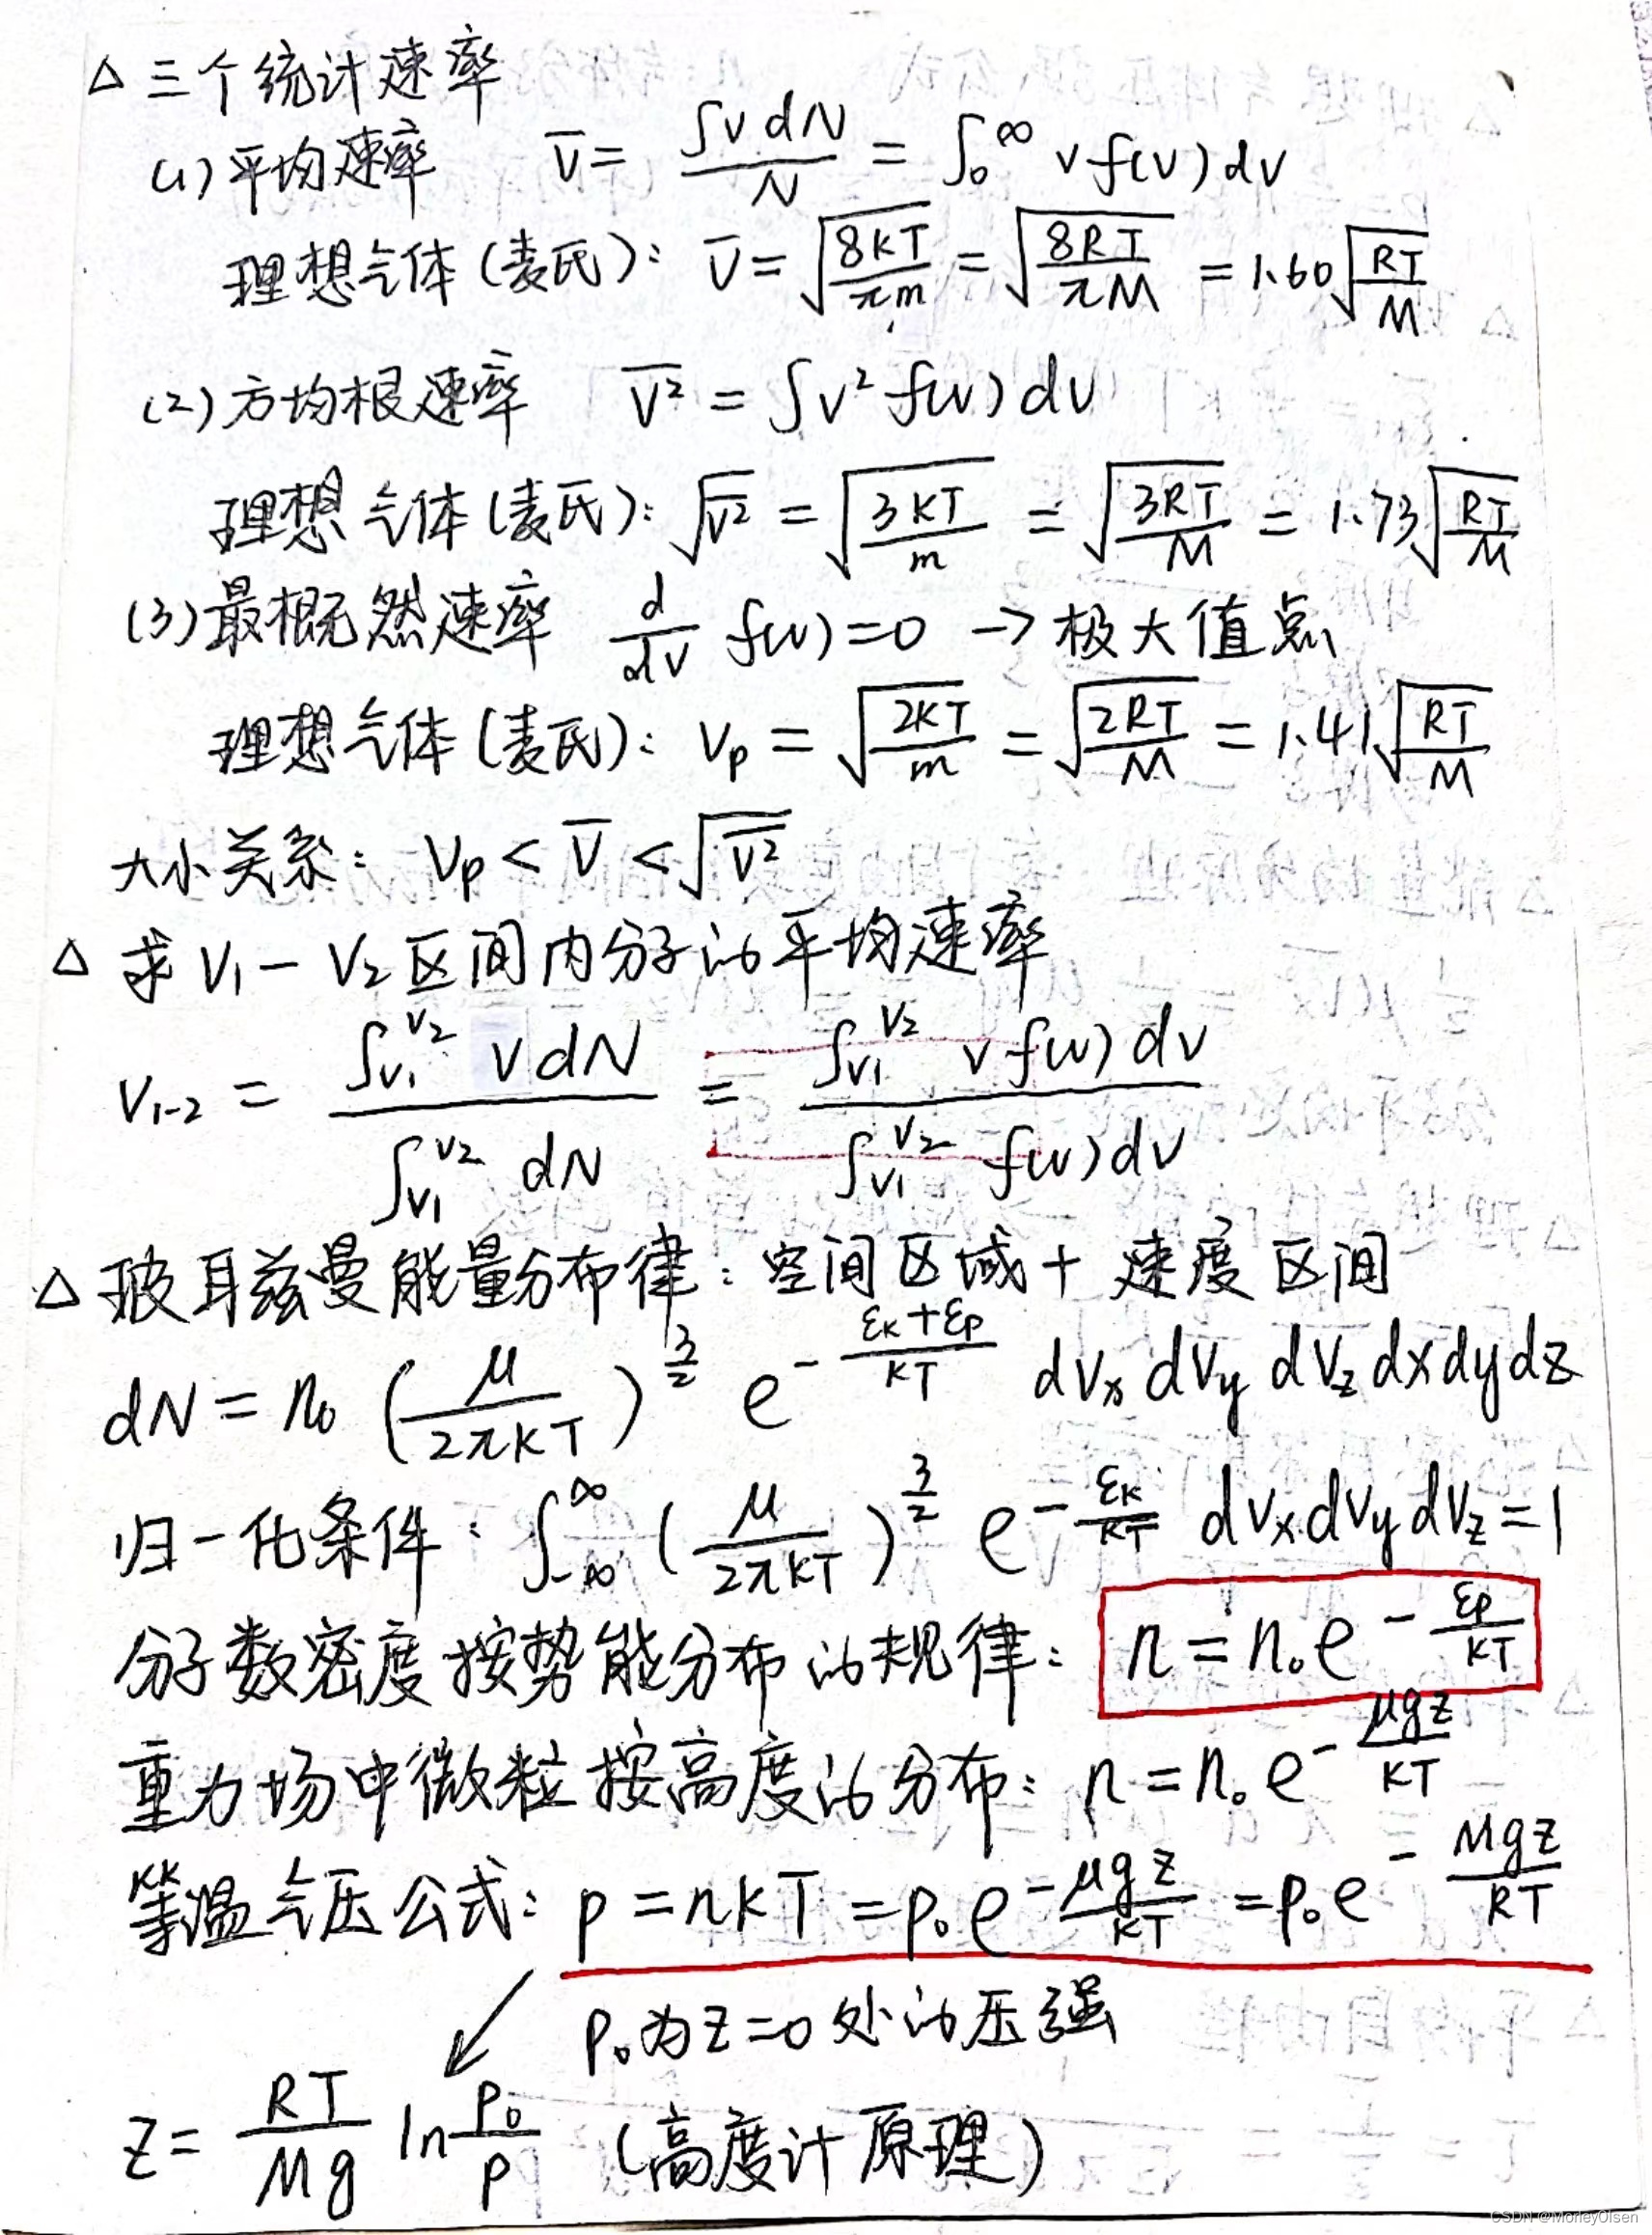 △ 三个统计速率
(1) 平均速率 v̄ = ∫v dN / N = ∫₀^∞ v f(v) dv
理想气体(麦氏): v̄ = √(8kT/πm) = √(8RT/πM) = 1.60√(RT/M)
(2) 方均根速率 v̄² = ∫v² f(v) dv
理想气体(麦氏): √v̄² = √(3kT/m) = √(3RT/M) = 1.73√(RT/M)
(3) 最概然速率 d/dv f(v) = 0 → 极大值点
理想气体(麦氏): vₚ = √(2kT/m) = √(2RT/M) = 1.41√(RT/M)
大小关系: vₚ < v̄ < √v̄²
△ 求 v₁ - v₂ 区间内分子的平均速率
v₁₋₂ = ∫_{v₁}^{v₂} v dN / ∫_{v₁}^{v₂} dN = ∫_{v₁}^{v₂} v f(v) dv / ∫_{v₁}^{v₂} f(v) dv
△ 玻耳兹曼能量分布律: 空间区域 + 速度区间
dN = n₀ (μ/2πkT)^{3/2} e^{-(εₖ+εₚ)/kT} dvₓ dv_y dv_z dx dy dz
归一化条件: ∫_{-∞}^{∞} (μ/2πkT)^{3/2} e^{-εₖ/kT} dvₓ dv_y dv_z = 1
分子数密度按势能分布的规律: n = n₀ e^{-εₚ/kT}
重力场中微粒按高度的分布: n = n₀ e^{-μgz/kT}
等温气压公式: p = nkT = p₀ e^{-μgz/kT} = p₀ e^{-Mgz/RT}
p₀为z=0处的压强
z = RT/Mg ln p₀/p (高度计原理)
CSDN @MorleyOlsen